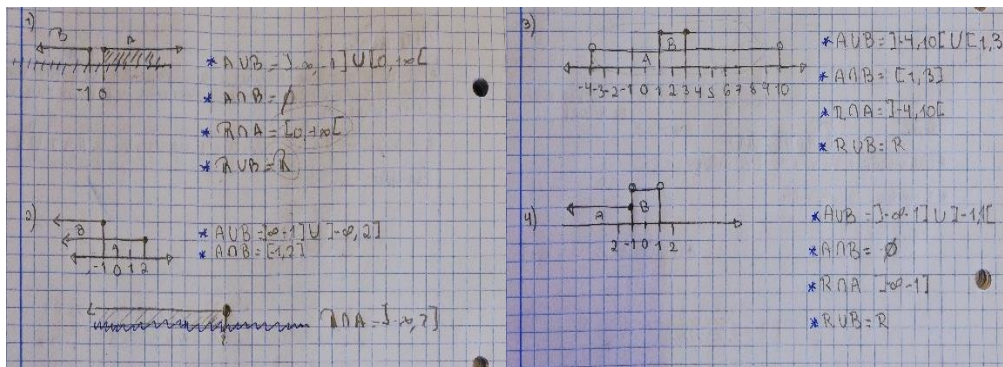 1)
B A
-1 0
* A∪B = ]-∞,-1] ∪ [0,+∞[
* A∩B = ∅
* R∩A = [0,+∞[
* R∪B = R
2)
B
A
-1 0 1 2
* A∪B = ]∞-1] ∪ ]-∞,2]
* A∩B = [-1,2]
R∩A = ]-∞,2]
3)
B
A
-4 -3 -2 -1 0 1 2 3 4 5 6 7 8 9 10
* A∪B = ]-4,10[ ∪ [1,3
* A∩B = [1,3]
* R∩A = ]-4,10[
* R∪B = R
4)
A B
2 -1 0 1 2
* A∪B = ]-∞-1] ∪ ]-1,1[
* A∩B = ∅
* R∩A ]-∞-1]
* R∪B = R